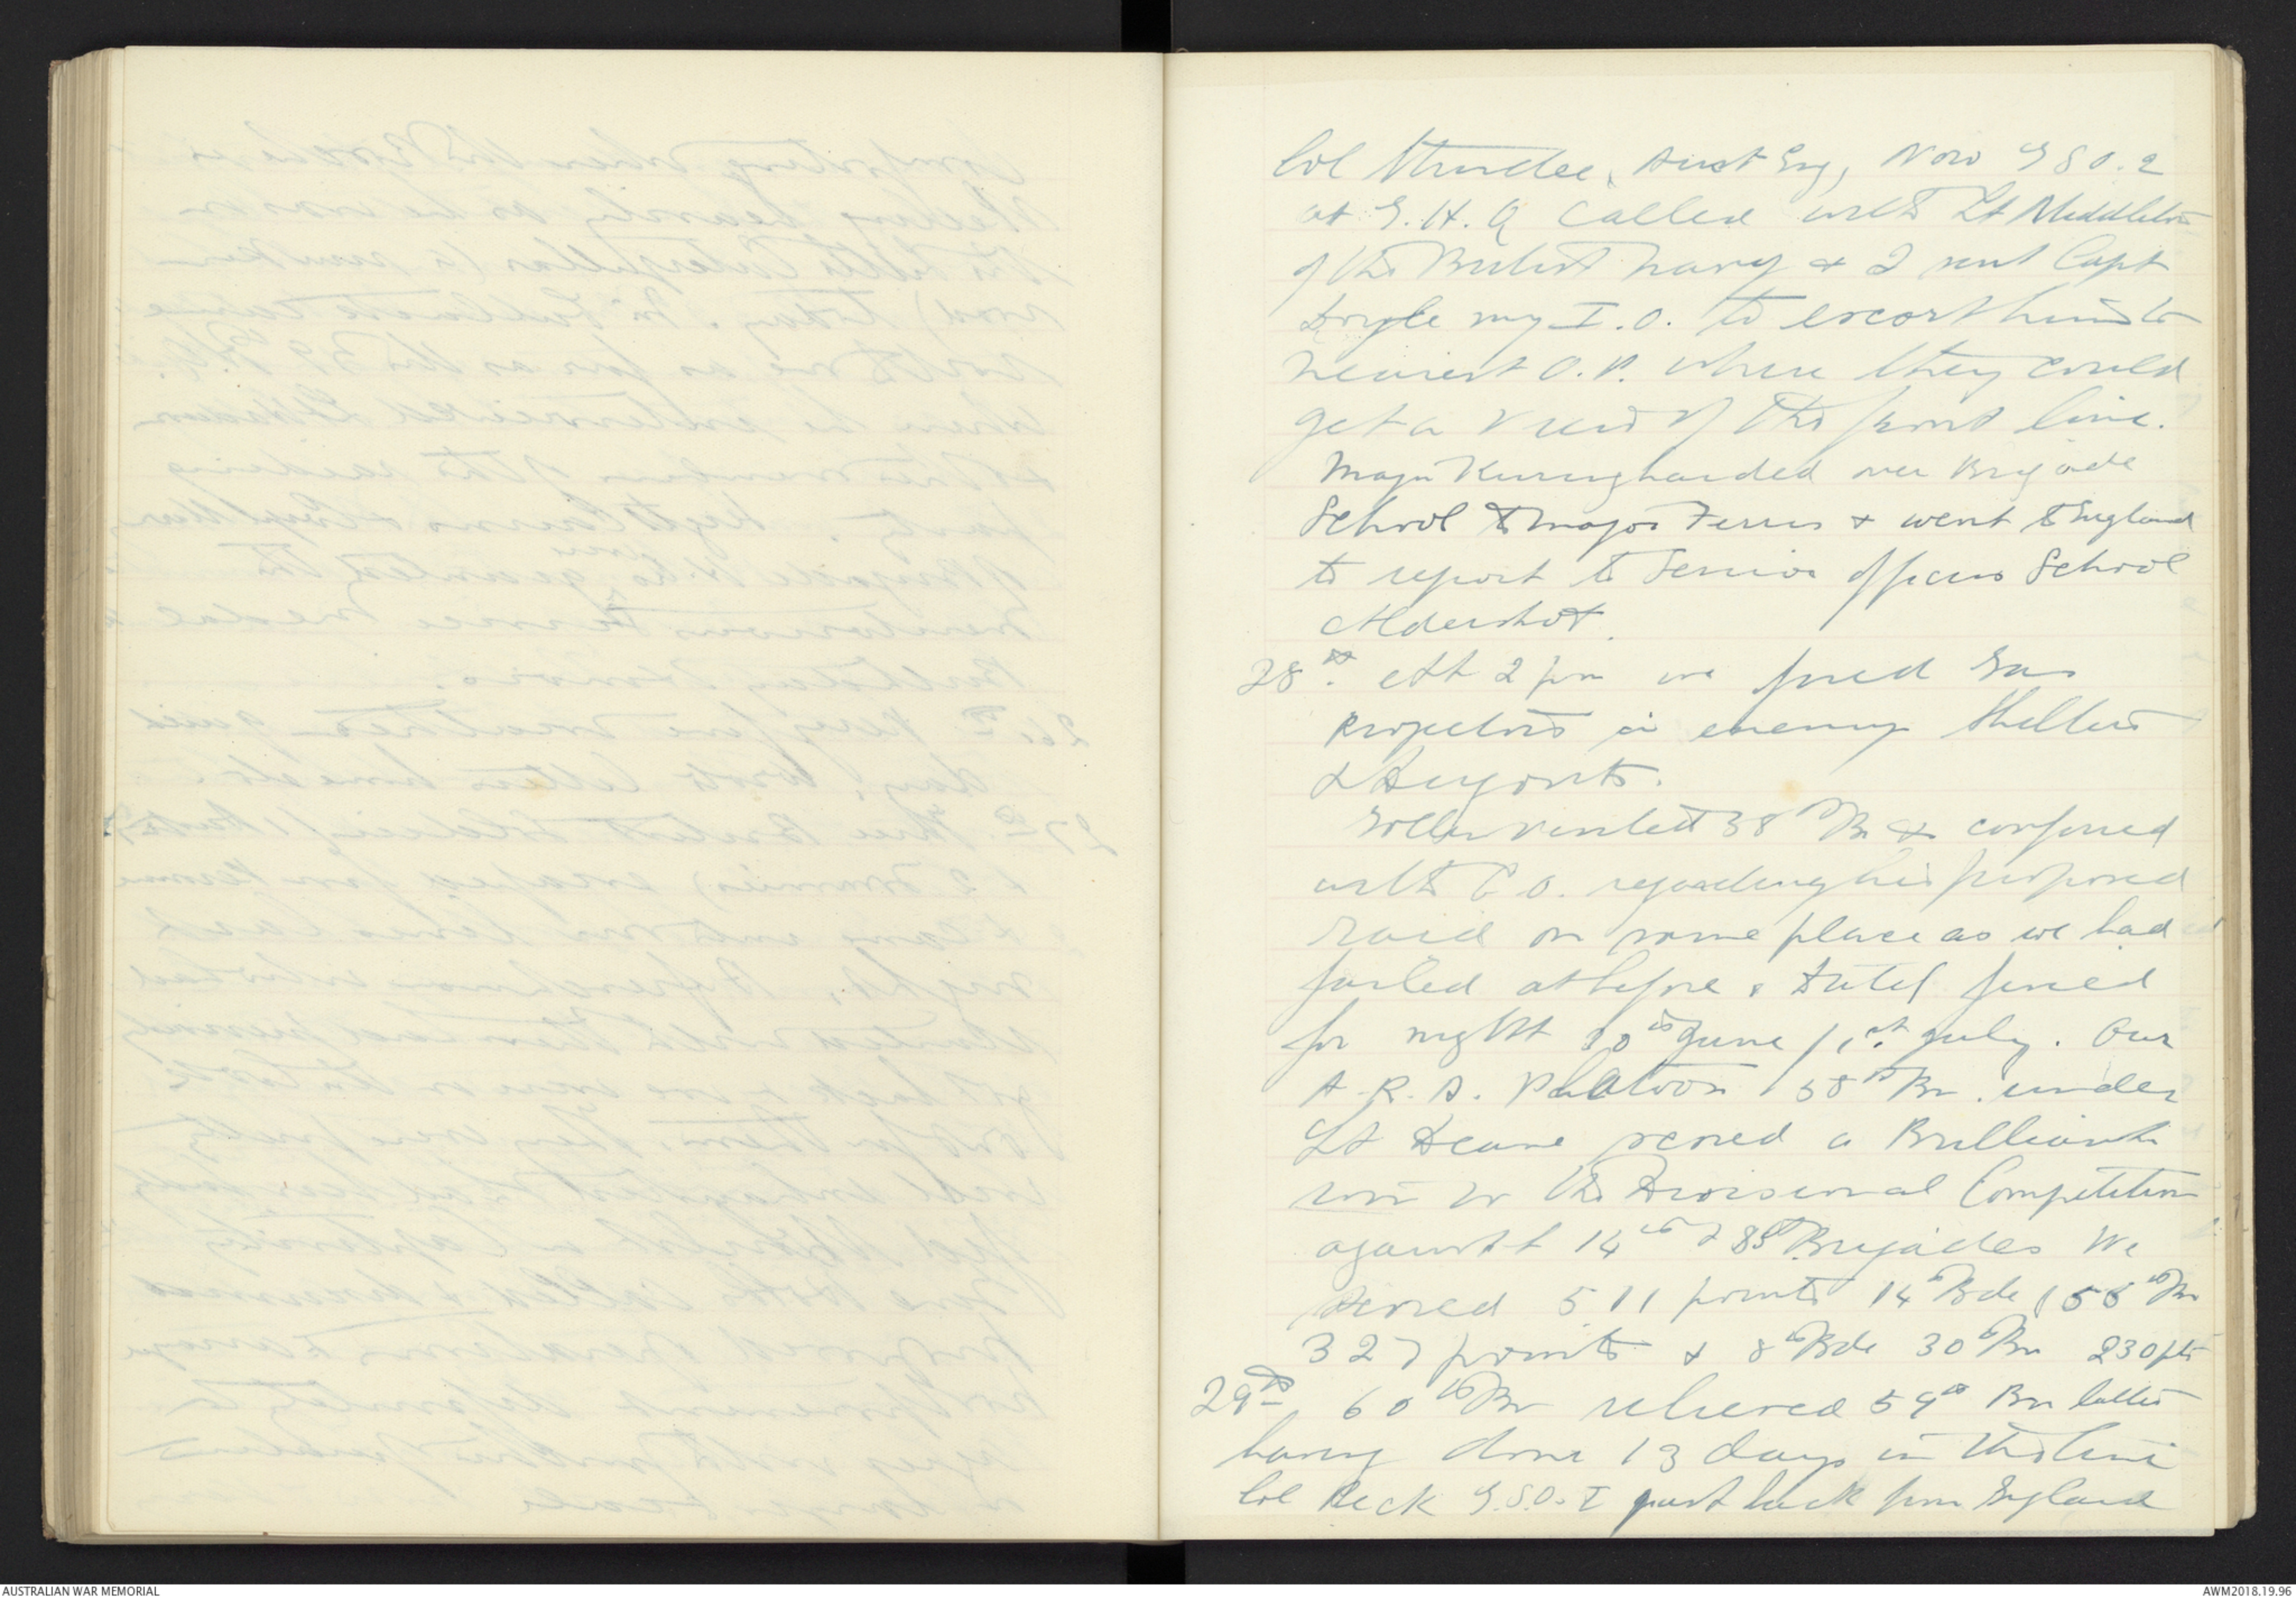 Col Sturdee, Aust Eng, Now G S O. 2
at G. H. Q called with Lt Middleton
of the British Navy & I sent Capt
Doyle my I. O. to escort him to
nearest O. P. where they could
get a view of the front line.
Major handed over Brigade
School to Major Ferres & went to England
to report to Senior Officers School
Aldershot.
28th. At 2 pm we fired Gas
Projectors in enemy Shelters
& Dugouts.
visited 58th Bn & conferred
with C O. regarding his proposed
raid on same place as we had
failed at before & fixed
for night 30th June / 1st July. Our
A. R. A. Platoon 58th Bn. under
Lt Deane scored a Brilliant
win in the Divisional Competition
against 14th & 8th Brigades We
scored 511 points 14th Bde (55th Bn
327 points & 8th Bde 30th Bn 230 pts
29th 60th Bn relieved 59th Bn latter
having done 13 days in the line
Col Peck G.S.O. I just back from England
AUSTRALIAN WAR MEMORIAL
AWM2018.19.96